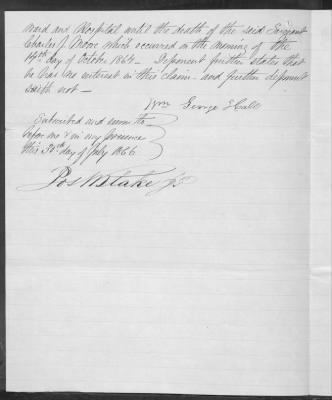 ward and Hospital until the death of the said Sergeant
Charles J. Moore which occurred on the morning of the
14th day of October 1864 – Deponent further states that
he has no interest in this claim – and further deponent
saith not –
Wm George Hall
Subscribed and sworn to
before me & in my presence
this 30th day of July 1866
Jos M Blake Jr